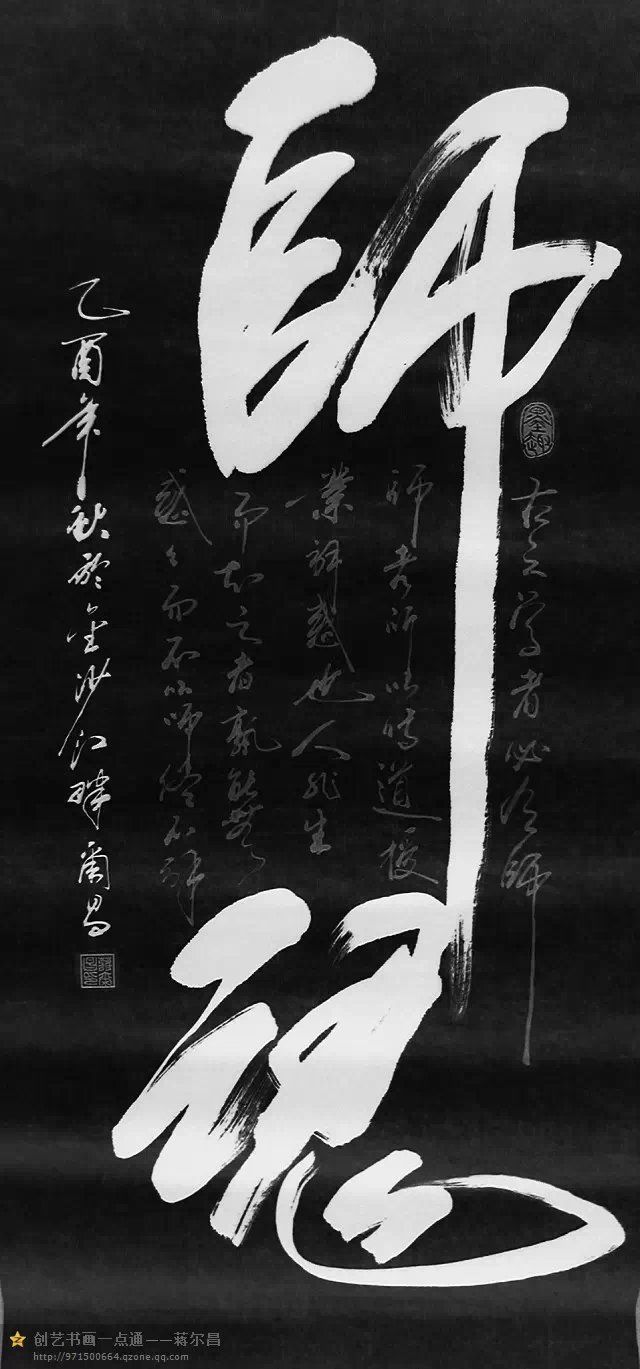 師魂
古之學者必有師
師者所以傳道授
業解惑也人非生
而知之者孰能無
惑々而不從師終不解
乙酉年秋於金沙江畔爾昌
创艺书画一点通——蒋尔昌
http://971500664.qzone.qq.com